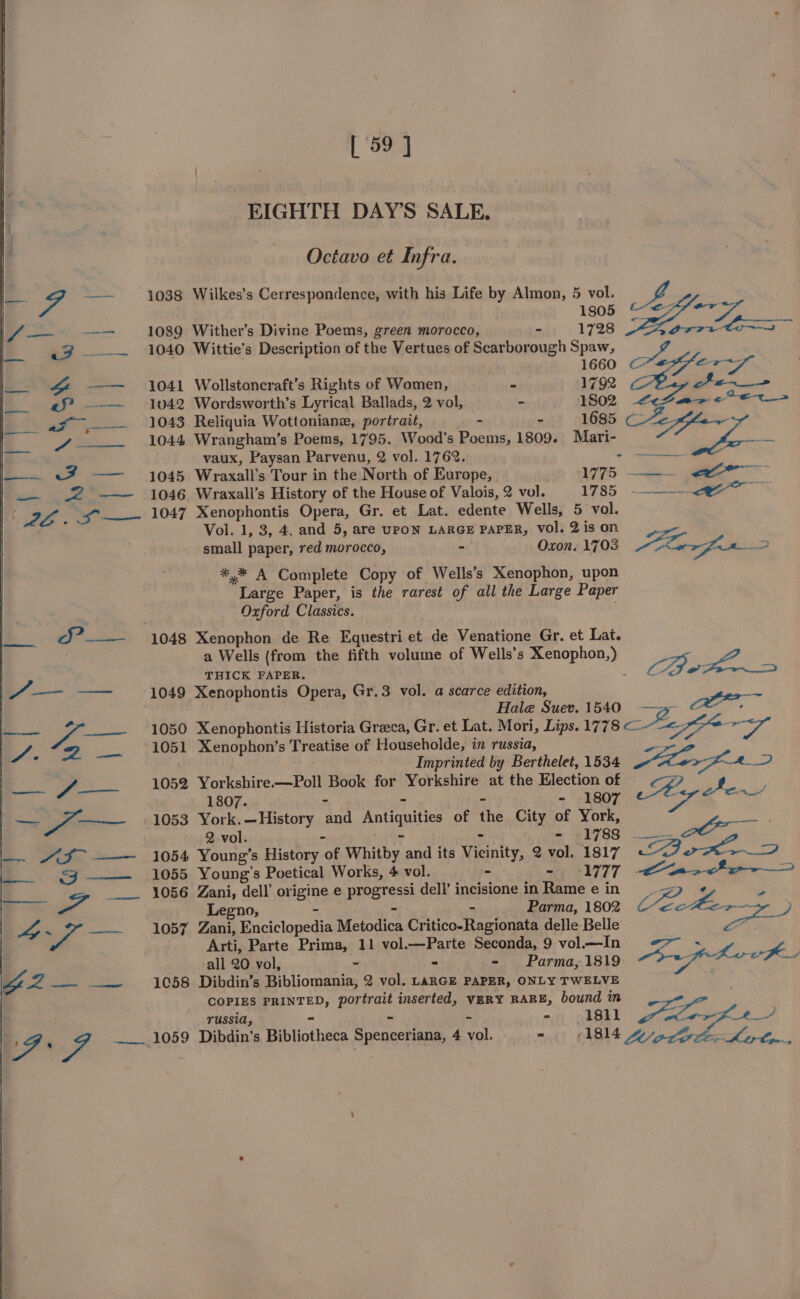 [ 59 ]
EIGHTH DAY'S SALE.
Octavo et Infra.
1038 Wilkes's Cerrespondence, with his Life by Almon, 5 vol.
1805
1039 Wither's Divine Poems, green morocco, - 1728
1040 Wittie's Description of the Vertues of Scarborough Spaw,
1660
1041 Wollstoncraft's Rights of Women, - 1792
1042 Wordsworth's Lyrical Ballads, 2 vol, - 1802
1043 Reliquia Wottonianæ, portrait, - - 1685
1044 Wrangham's Poems, 1795. Wood's Poems, 1809. Mari-
vaux, Paysan Parvenu, 2 vol. 1762. -
1045 Wraxall's Tour in the North of Europe, 1775
1046 Wraxall's History of the House of Valois, 2 vol. 1785
26.5 1047 Xenophontis Opera, Gr. et Lat. edente Wells, 5 vol.
Vol. 1, 3, 4, and 5, are UPON LARGE PAPER, vol. 2 is on
small paper, red morocco, - Oxon. 1703
*⁎* A Complete Copy of Wells's Xenophon, upon
Large Paper, is the rarest of all the Large Paper
Oxford Classics.
1048 Xenophon de Re Equestri et de Venatione Gr. et Lat.
a Wells (from the fifth volume of Wells's Xenophon,)
THICK PAPER.
1049 Xenophontis Opera, Gr. 3 vol. a scarce edition,
Halæ Suev. 1540
1050 Xenophontis Historia Græca, Gr. et Lat. Mori, Lips. 1778
1051 Xenophon's Treatise of Householde, in russia,
Imprinted by Berthelet, 1534
1052 Yorkshire.—Poll Book for Yorkshire at the Election of
1807. - - - - 1807
1053 York.—History and Antiquities of the City of York,
2 vol. - - - - 1788
1054 Young's History of Whitby and its Vicinity, 2 vol. 1817
1055 Young's Poetical Works, 4 vol. - - 1777
1056 Zani, dell' origine e progressi dell' incisione in Rame e in
Legno, - - - Parma, 1802
1057 Zani, Enciclopedia Metodica Critico-Ragionata delle Belle
Arti, Parte Prima, 11 vol.—Parte Seconda, 9 vol.—In
all 20 vol, - - - Parma, 1819
1058 Dibdin's Bibliomania, 2 vol. LARGE PAPER, ONLY TWELVE
COPIES PRINTED, portrait inserted, VERY RARE, bound in
russia, - - - - 1811
1059 Dibdin's Bibliotheca Spenceriana, 4 vol. - 1814